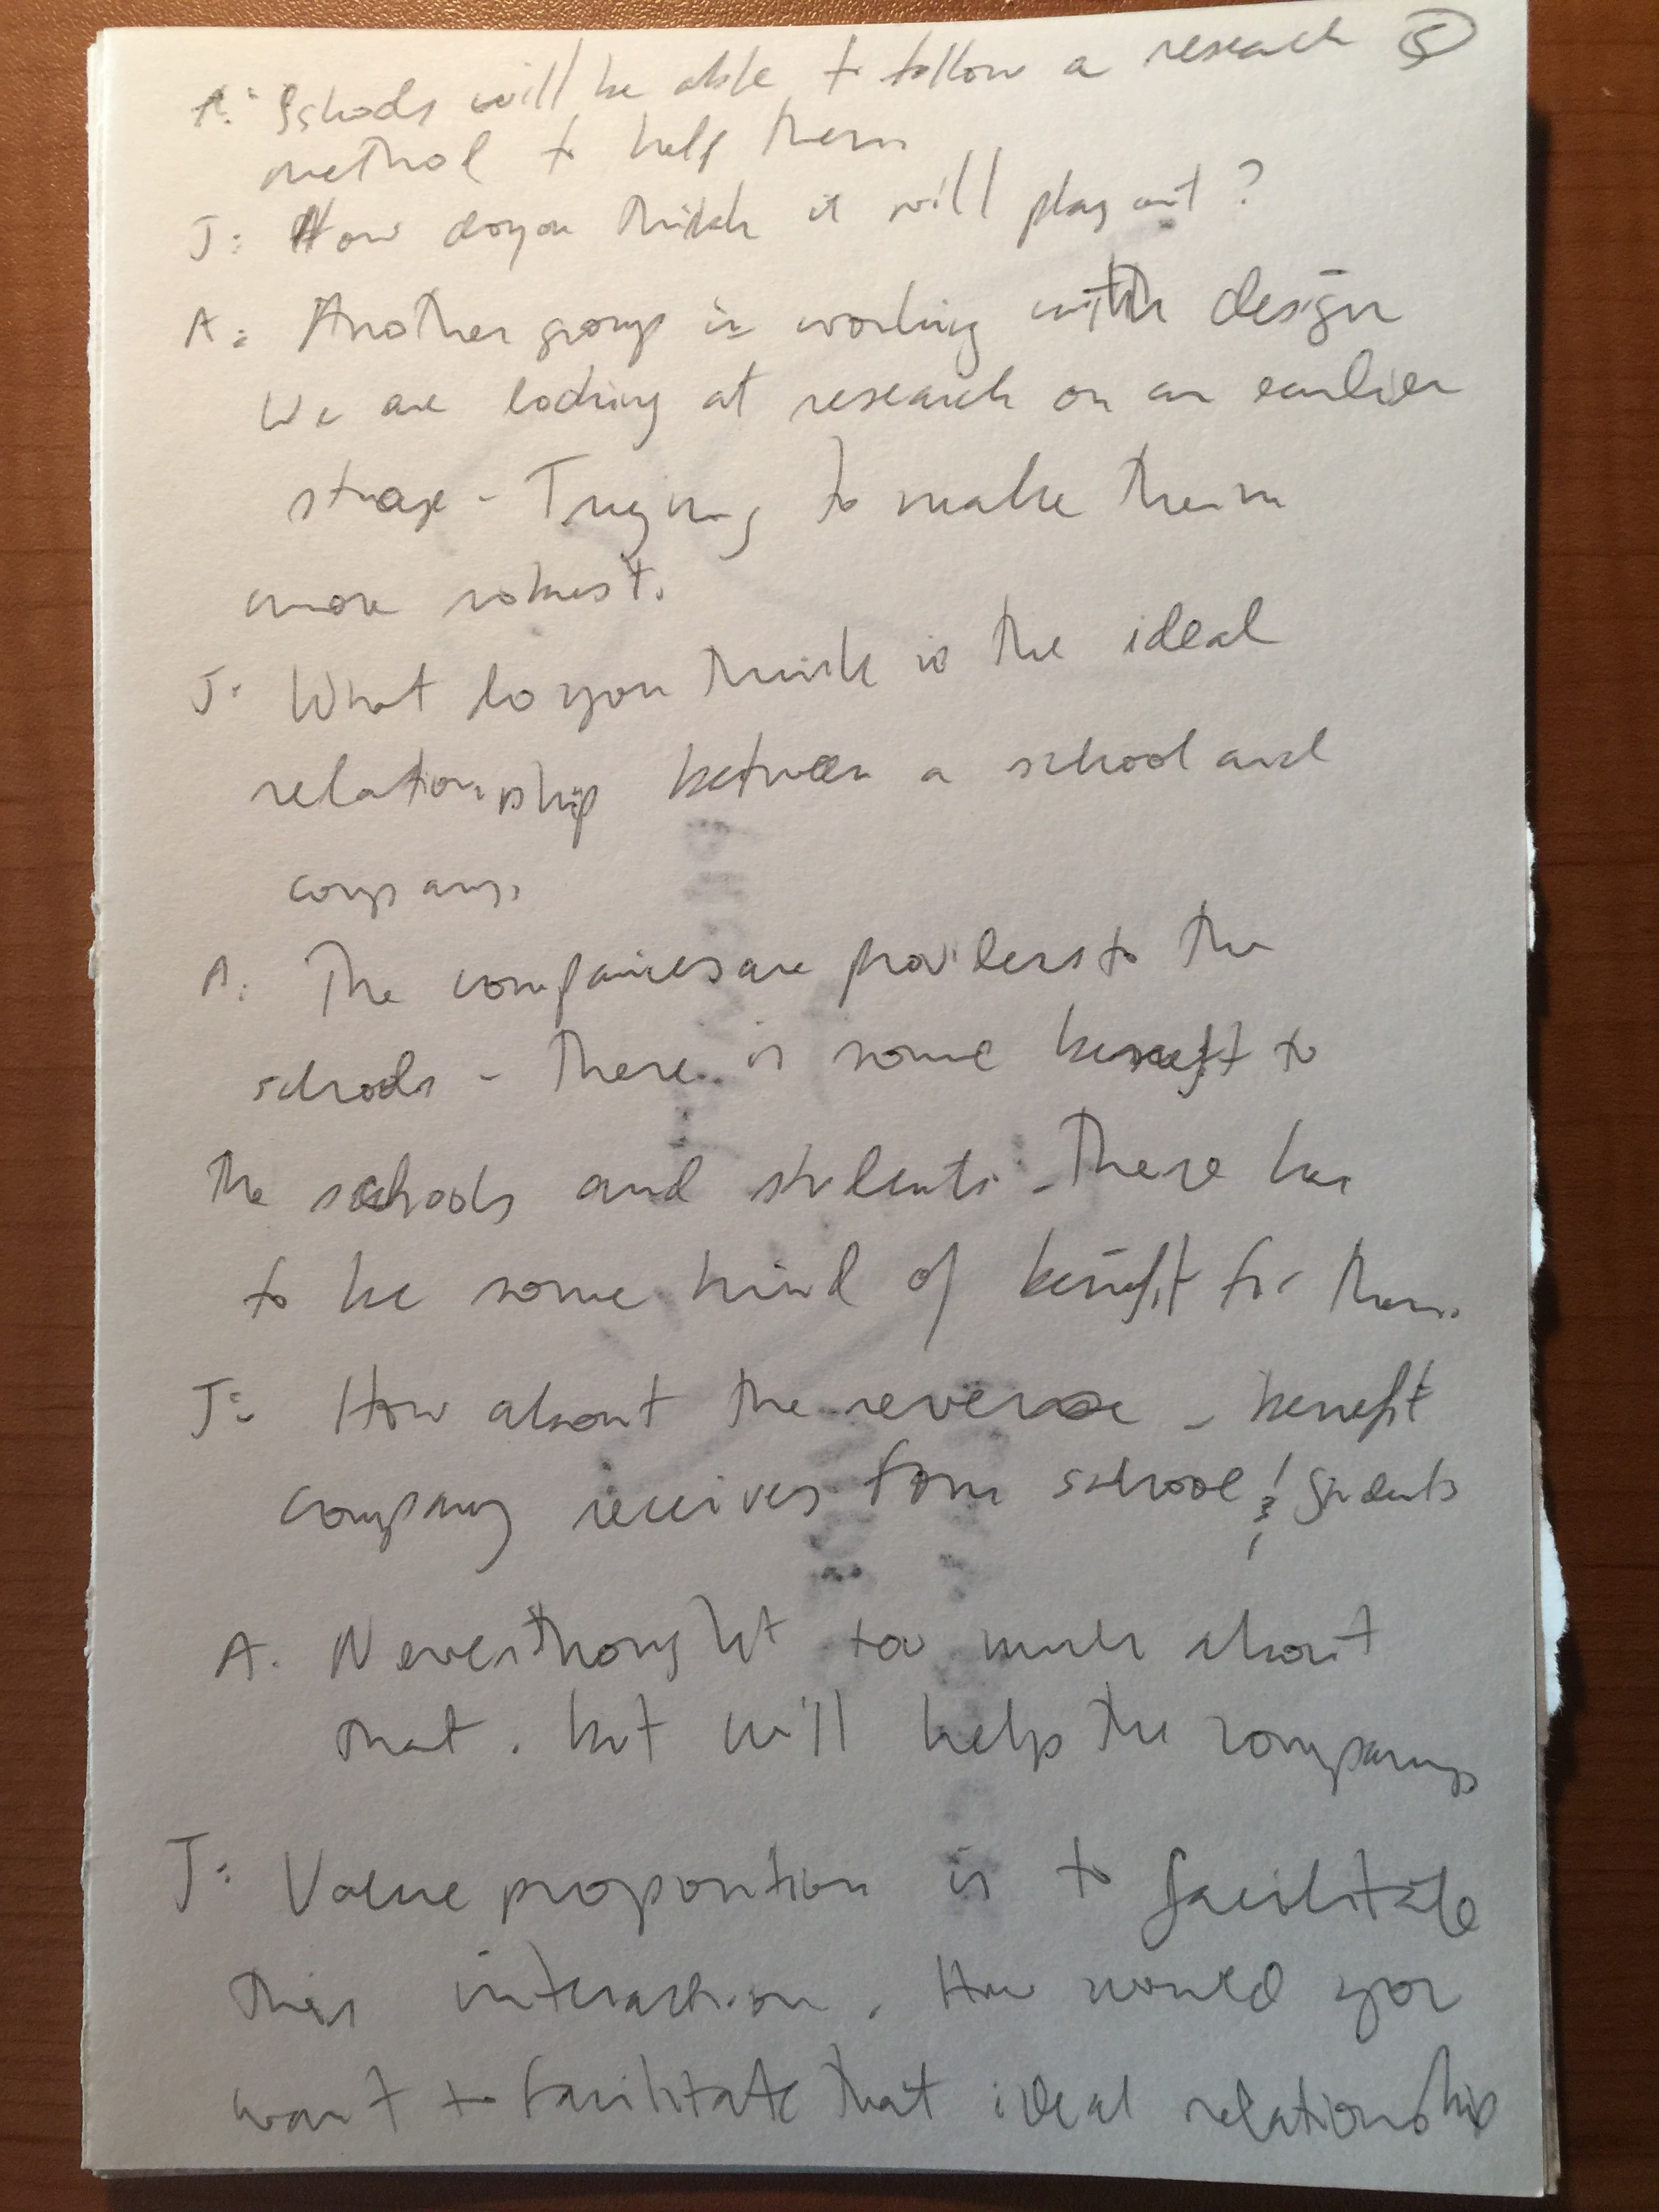 A: Schools will be able to follow a research 5
method to help them
J: How do you think it will play out?
A: Another group is working with design
We are looking at research on an earlier
stage - Trying to make them
more robust.
J: What do you think is the ideal
relationship between a school and
company.
A: The companies are providers to the
schools - There is some benefit to
the schools and students - There has
to be some kind of benefit for them.
J: How about the reverse - benefit
company receives from school & students
A. Never thought too much about
that. but will help the company
J: Value proposition is to facilitate
this interaction. How would you
want to facilitate that ideal relationship